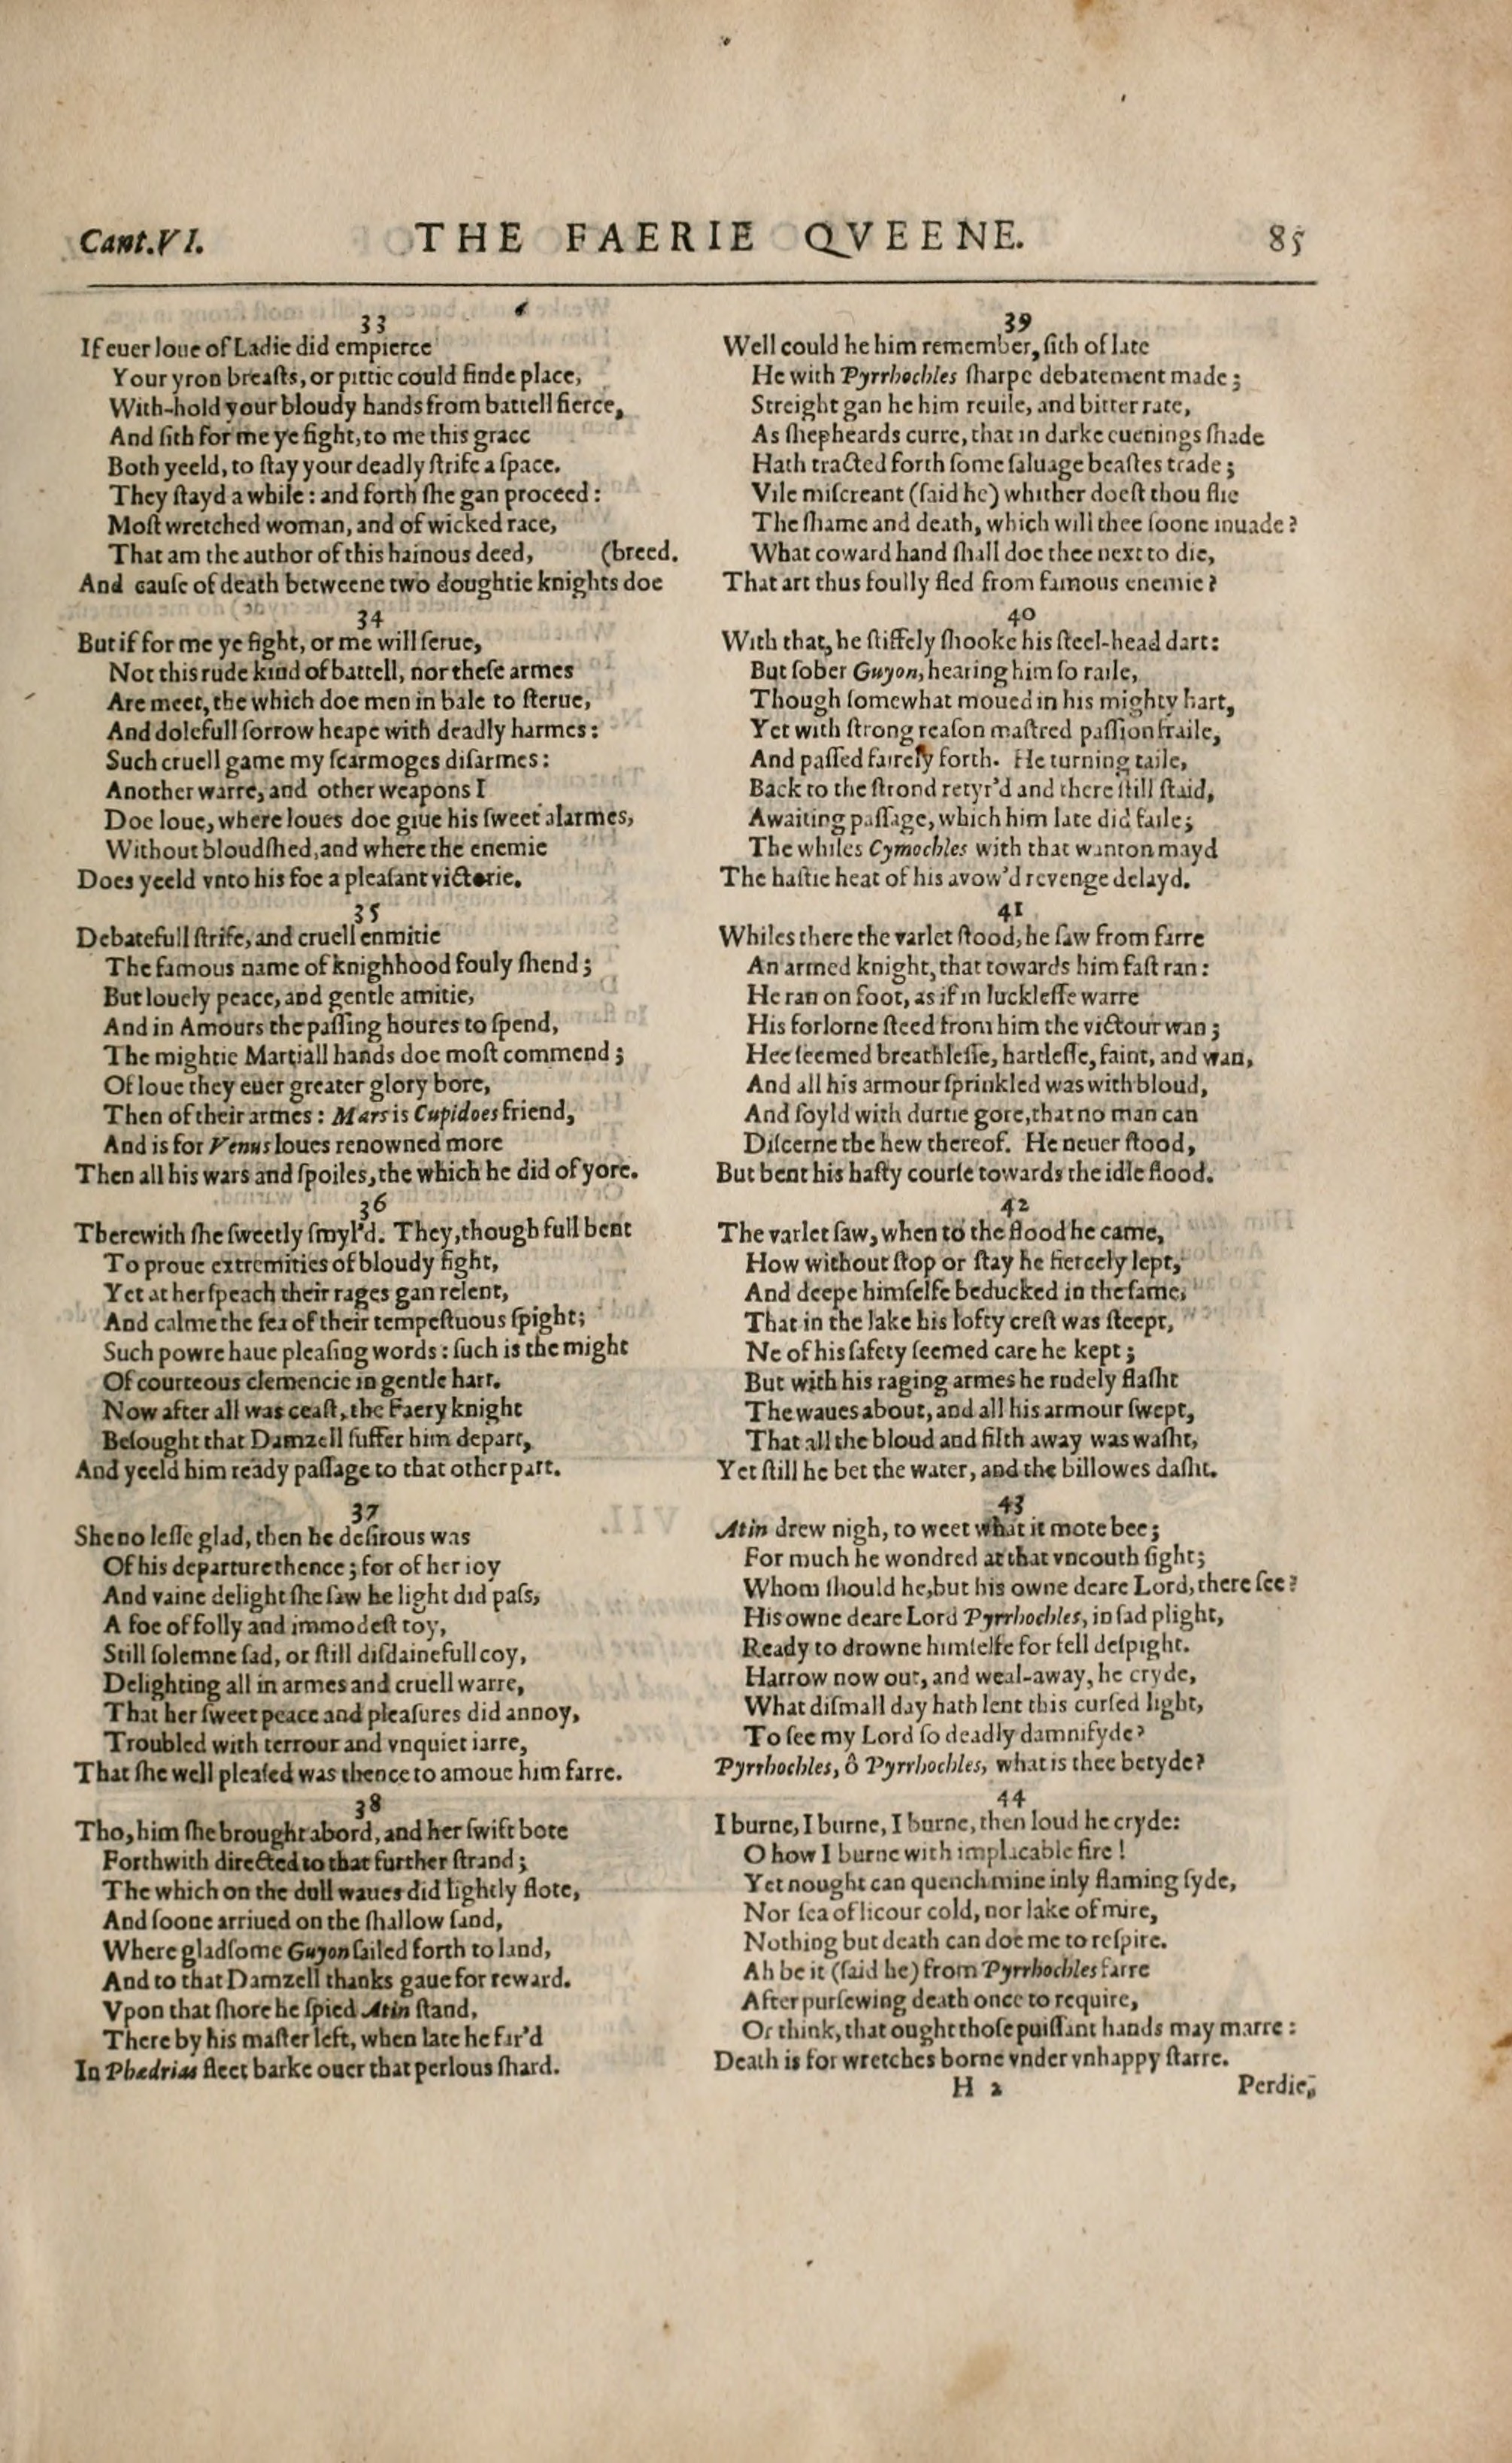 Cant.VI.
THE FAERIE QVEENE.
85
33
If euer loue of Ladie did empierce
Your yron breaſts, or pittie could finde place,
With-hold your bloudy hands from battell fierce,
And ſith for me ye fight, to me this grace
Both yeeld, to ſtay your deadly ſtrife a ſpace.
They ſtayd a while: and forth ſhe gan proceed:
Moſt wretched woman, and of wicked race,
That am the author of this hainous deed,
(breed.
And cauſe of death betweene two doughtie knights doe
34
But if for me ye fight, or me will ſerue,
Not this rude kind of battell, nor theſe armes
Are meet, the which doe men in bale to ſterue,
And dolefull ſorrow heape with deadly harmes:
Such cruell game my ſcarmoges diſarmes:
Another warre, and other weapons I
Doe loue, where loues doe giue his ſweet alarmes,
Without bloudſhed, and where the enemie
Does yeeld vnto his foe a pleaſant victorie.
35
Debatefull ſtrife, and cruell enmitie
The famous name of knighhood fouly ſhend;
But louely peace, and gentle amitie,
And in Amours the paſſing houres to ſpend,
The mightie Martiall hands doe moſt commend;
Of loue they euer greater glory bore,
Then of their armes: Mars is Cupidoes friend,
And is for Venus loues renowned more
Then all his wars and ſpoiles, the which he did of yore.
36
Therewith ſhe ſweetly ſmyl'd. They, though full bent
To proue extremities of bloudy fight,
Yet at her ſpeach their rages gan relent,
And calme the ſea of their tempeſtuous ſpight;
Such powre haue pleaſing words: ſuch is the might
Of courteous clemencie in gentle hart.
Now after all was ceaſt, the Faery knight
Beſought that Damzell ſuffer him depart,
And yeeld him ready paſſage to that other part.
37
She no leſſe glad, then he deſirous was
Of his departure thence; for of her ioy
And vaine delight ſhe ſaw he light did paſs,
A foe of folly and immodeſt toy,
Still ſolemne ſad, or ſtill diſdainefull coy,
Delighting all in armes and cruell warre,
That her ſweet peace and pleaſures did annoy,
Troubled with terrour and vnquiet iarre,
That ſhe well pleaſed was thence to amoue him farre.
38
Tho, him ſhe brought abord, and her ſwift bote
Forthwith directed to that further ſtrand;
The which on the dull waues did lightly flote,
And ſoone arriued on the ſhallow ſand,
Where gladſome Guyon ſailed forth to land,
And to that Damzell thanks gaue for reward.
Vpon that ſhore he ſpied Atin ſtand,
There by his maſter left, when late he far'd
In Phædrias fleet barke ouer that perlous ſhard.
39
Well could he him remember, ſith of late
He with Pyrrhochles ſharpe debatement made;
Streight gan he him reuile, and bitter rate,
As ſhepheards curre, that in darke euenings ſhade
Hath tracted forth ſome ſaluage beaſtes trade;
Vile miſcreant (ſaid he) whither doeſt thou flie
The ſhame and death, which will thee ſoone inuade?
What coward hand ſhall doe thee next to die,
That art thus foully fled from famous enemie?
40
With that, he ſtiffely ſhooke his ſteel-head dart:
But ſober Guyon, hearing him ſo raile,
Though ſomewhat moued in his mighty hart,
Yet with ſtrong reaſon maſtred paſſion fraile,
And paſſed fairely forth. He turning taile,
Back to the ſtrond retyr'd and there ſtill ſtaid,
Awaiting paſſage, which him late did faile;
The whiles Cymochles with that wanton mayd
The haſtie heat of his avow'd revenge delayd.
41
Whiles there the varlet ſtood, he ſaw from farre
An armed knight, that towards him faſt ran:
He ran on foot, as if in luckleſſe warre
His forlorne ſteed from him the victour wan;
Hee ſeemed breathleſſe, hartleſſe, faint, and wan,
And all his armour ſprinkled was with bloud,
And ſoyld with durtie gore, that no man can
Diſcerne the hew thereof. He neuer ſtood,
But bent his haſty courſe towards the idle flood.
42
The varlet ſaw, when to the flood he came,
How without ſtop or ſtay he fiercely lept,
And deepe himſelfe beducked in the ſame,
That in the lake his lofty creſt was ſteept,
Ne of his ſafety ſeemed care he kept;
But with his raging armes he rudely flaſht
The waues about, and all his armour ſwept,
That all the bloud and filth away was waſht,
Yet ſtill he bet the water, and the billowes daſht.
43
Atin drew nigh, to weet what it mote bee;
For much he wondred at that vncouth ſight;
Whom ſhould he, but his owne deare Lord, there ſee?
His owne deare Lord Pyrrhochles, in ſad plight,
Ready to drowne himſelfe for fell deſpight.
Harrow now out, and weal-away, he cryde,
What diſmall day hath lent this curſed light,
To ſee my Lord ſo deadly damnifyde?
Pyrrhochles, ô Pyrrhochles, what is thee betyde?
44
I burne, I burne, I burne, then loud he cryde:
O how I burne with implacable fire!
Yet nought can quench mine inly flaming ſyde,
Nor ſea of licour cold, nor lake of mire,
Nothing but death can doe me to reſpire.
Ah be it (ſaid he) from Pyrrhochles farre
After purſewing death once to require,
Or think, that ought thoſe puiſſant hands may marre:
Death is for wretches borne vnder vnhappy ſtarre.
H 2
Perdie,